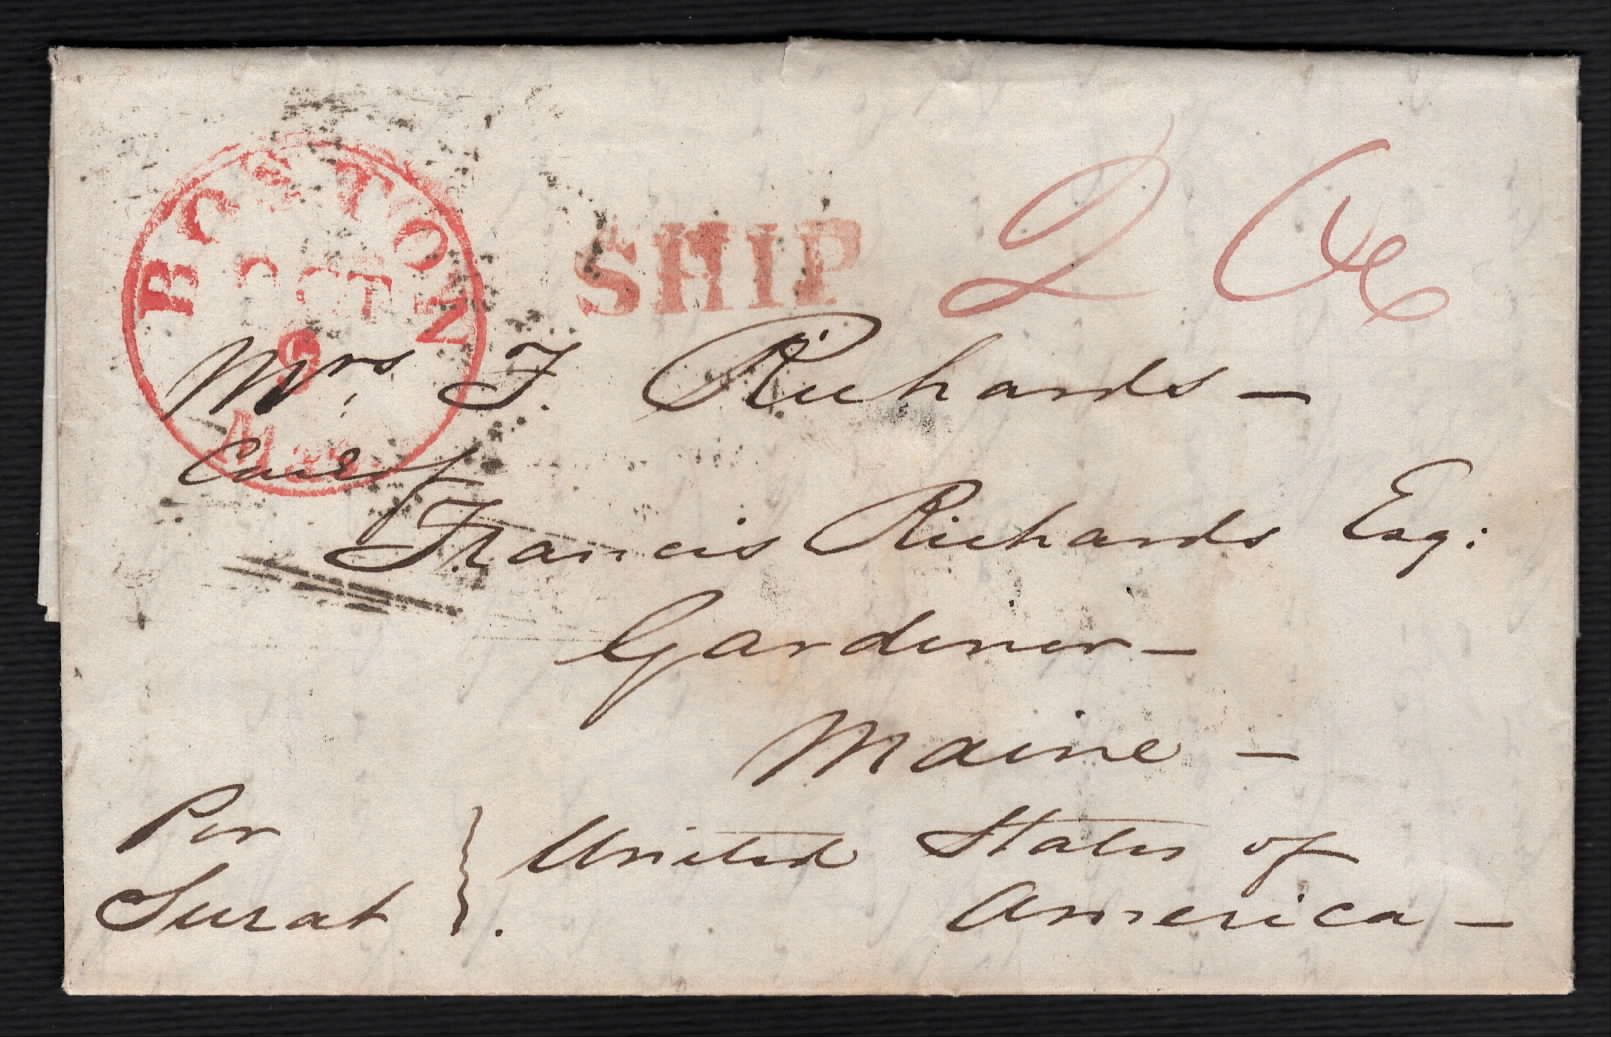 BOSTON
OCT
9
Mas.
SHIP
Mrs. F. Richards —
Care of
Francis Richards Esq:
Gardiner —
Maine —
Per
Surat } . United States of
America —